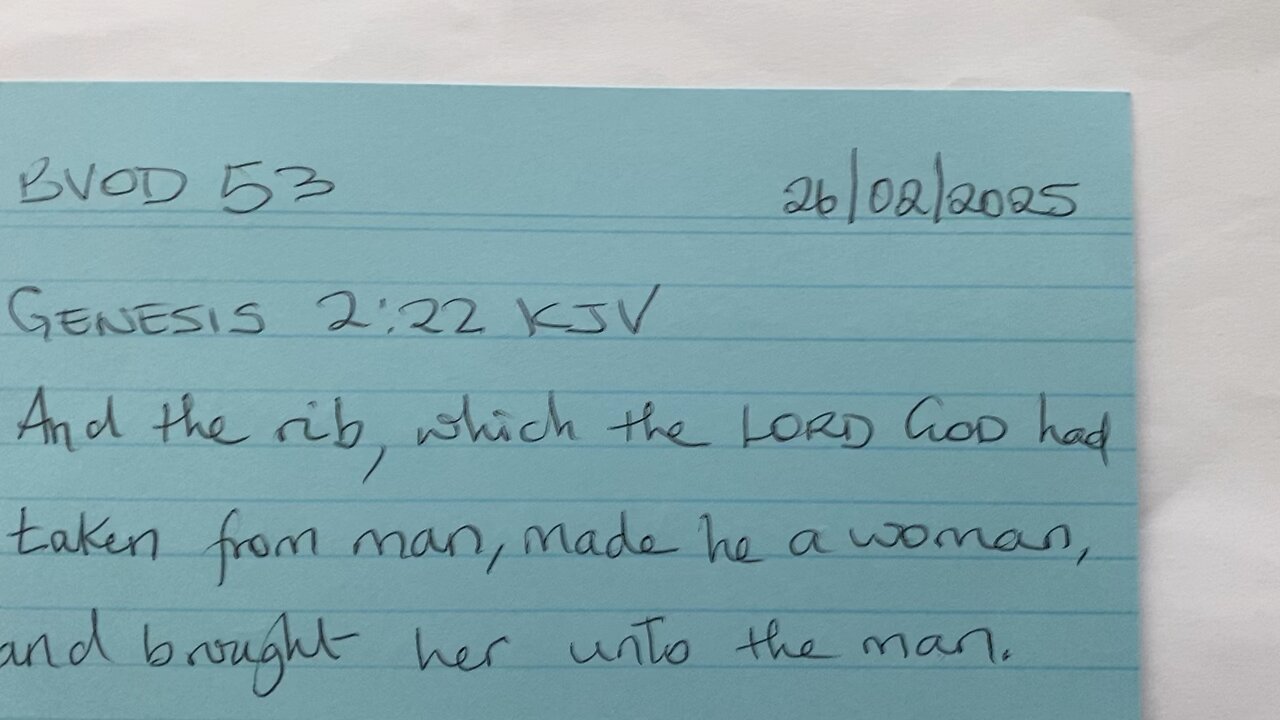 BVOD 53 26/02/2025
GENESIS 2:22 KJV
And the rib, which the LORD GOD had
taken from man, made he a woman,
and brought her unto the man.